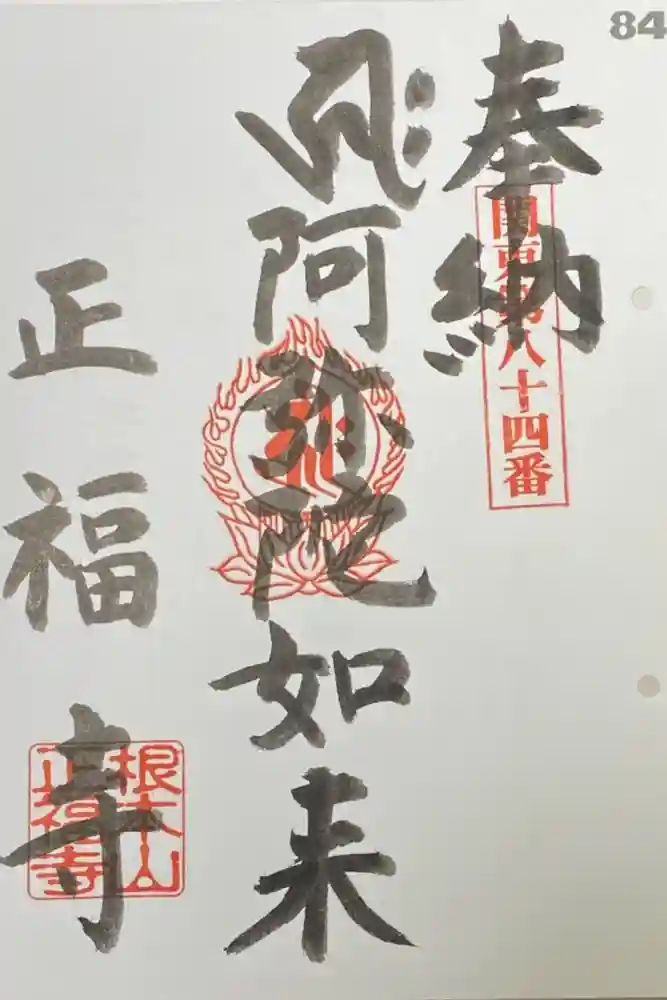 84
奉納
関東第八十四番
𑖮𑖿𑖨𑖱𑖾
阿弥陀如来
正福寺
根本山
正福寺